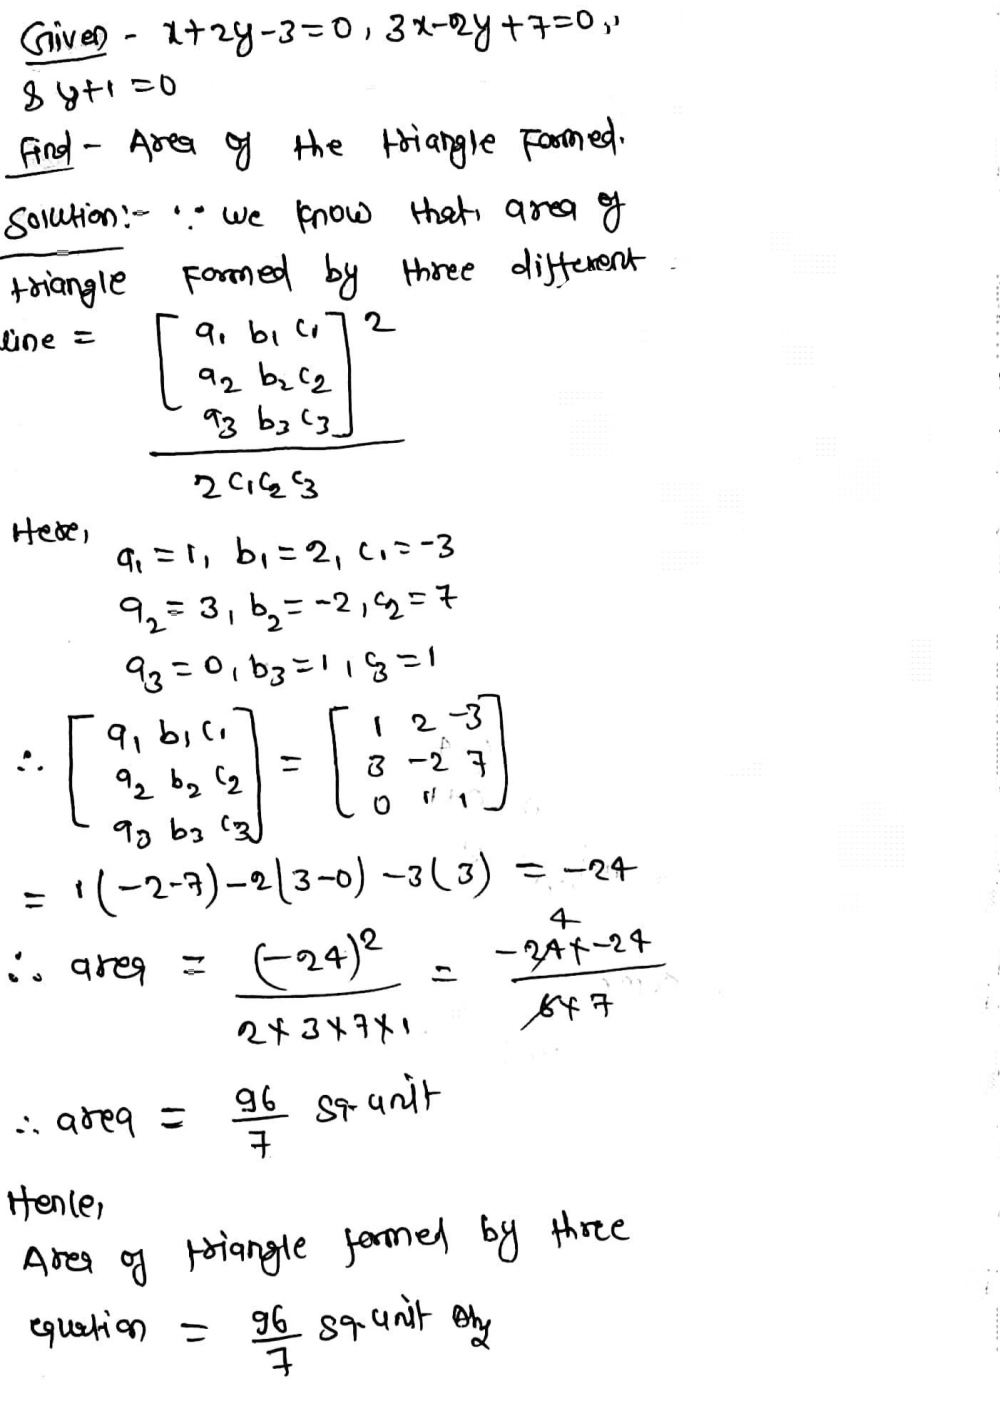 Given - x+2y-3=0, 3x-2y+7=0,
& y+1=0
Find - Area of the triangle Formed.
Solution:- ∵ we know that, area of
triangle Formed by three different
line = [a₁ b₁ c₁]²
a₂ b₂ c₂
a₃ b₃ c₃
2 c₁c₂c₃
Here,
a₁ = 1, b₁ = 2, c₁ = -3
a₂ = 3, b₂ = -2, c₂ = 7
a₃ = 0, b₃ = 1, c₃ = 1
∴ [a₁ b₁ c₁ = [1 2 -3
a₂ b₂ c₂ 3 -2 7
a₃ b₃ c₃] 0 1 1]
= 1(-2-7) -2(3-0) -3(3) = -24
∴ area = (-24)² / 2×3×7×1 = -24×-24 / 6×7
4
∴ area = 96/7 sq. unit
Hence,
Area of triangle formed by three
equation = 96/7 sq. unit